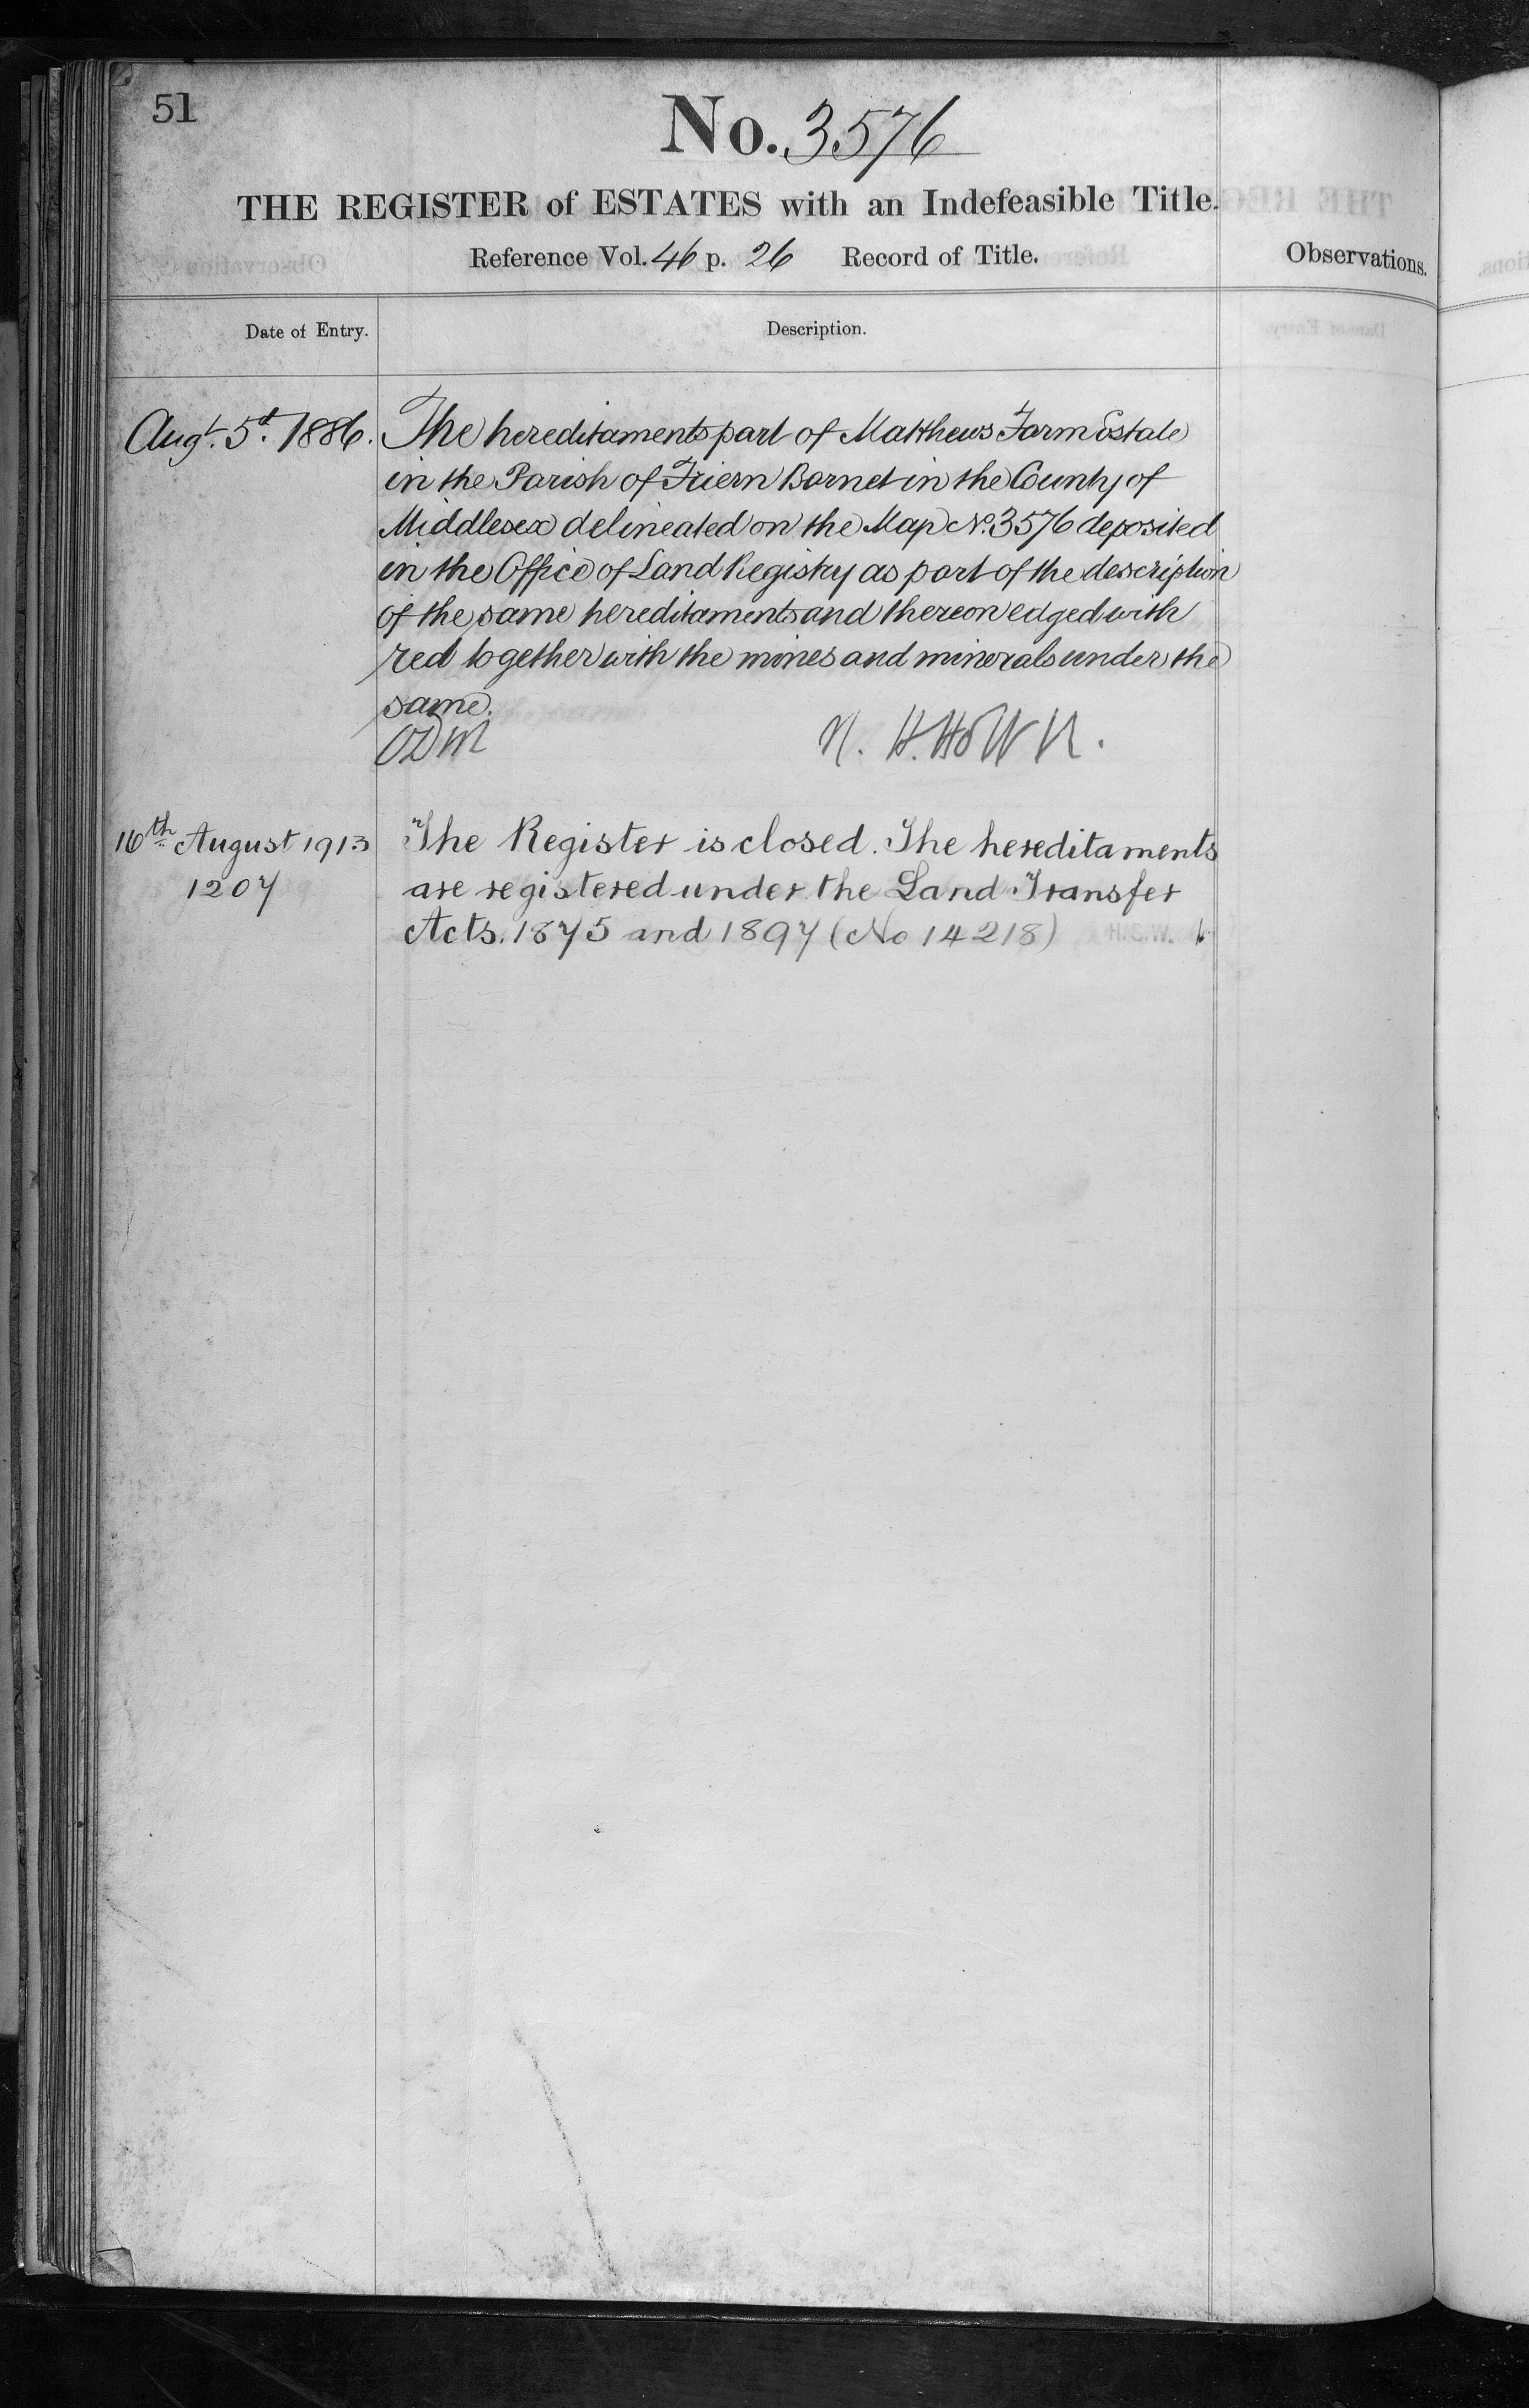 51
No. 3576
THE REGISTER of ESTATES with an Indefeasible Title.
Reference Vol. 46 p. 26 Record of Title.
Observations.
Date of Entry.
Description.
Augt. 5th. 1886.
The hereditaments part of Matthews Farm Estate
in the Parish of Friern Barnet in the County of
Middlesex delineated on the Map No. 3576 deposited
in the Office of Land Registry as part of the description
of the same hereditaments and thereon edged with
red together with the mines and minerals under the
same.
16th August 1913
1207
The Register is closed. The hereditaments
are registered under the Land Transfer
Acts. 1875 and 1897 (No 14218) H.S.W.